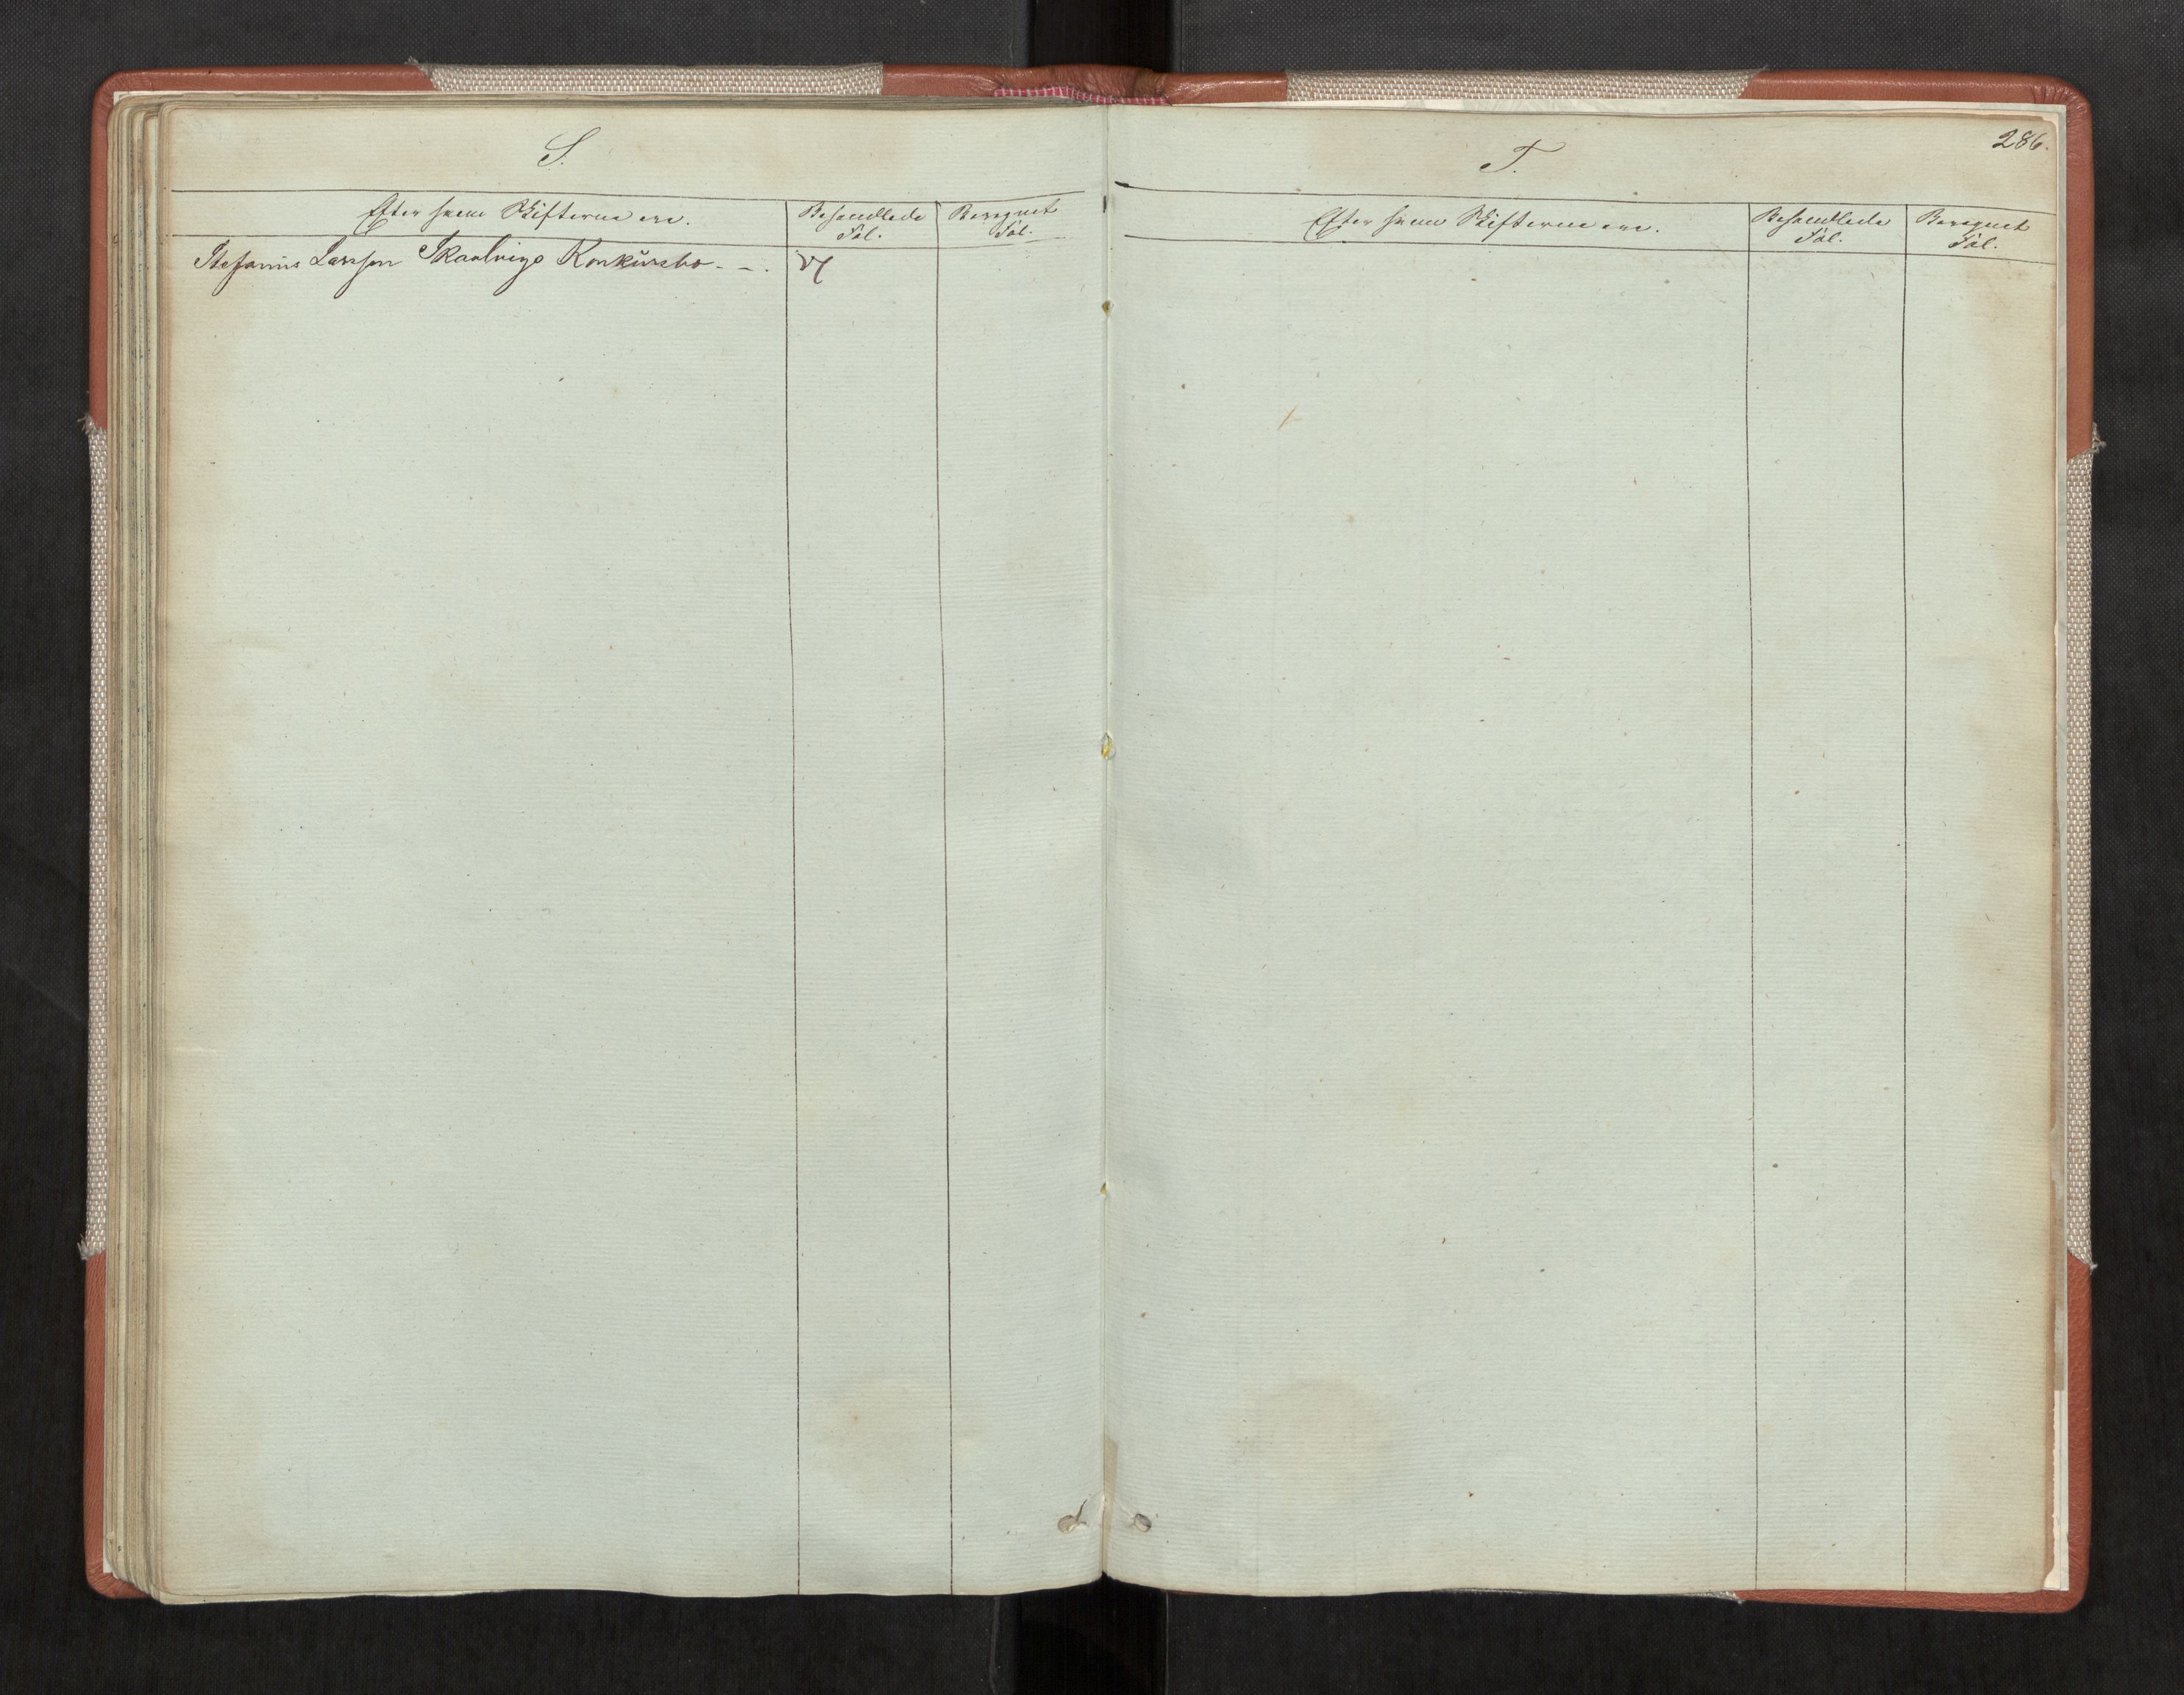 S.
Efter hvem Skifterne ere.
Behandlede Fol.
Beregnet Fol.
Stefanus Larsen Skaalvigs Konkursbo - - .
286.
T.
Efter hvem Skifterne ere.
Behandlede Fol.
Beregnet Fol.